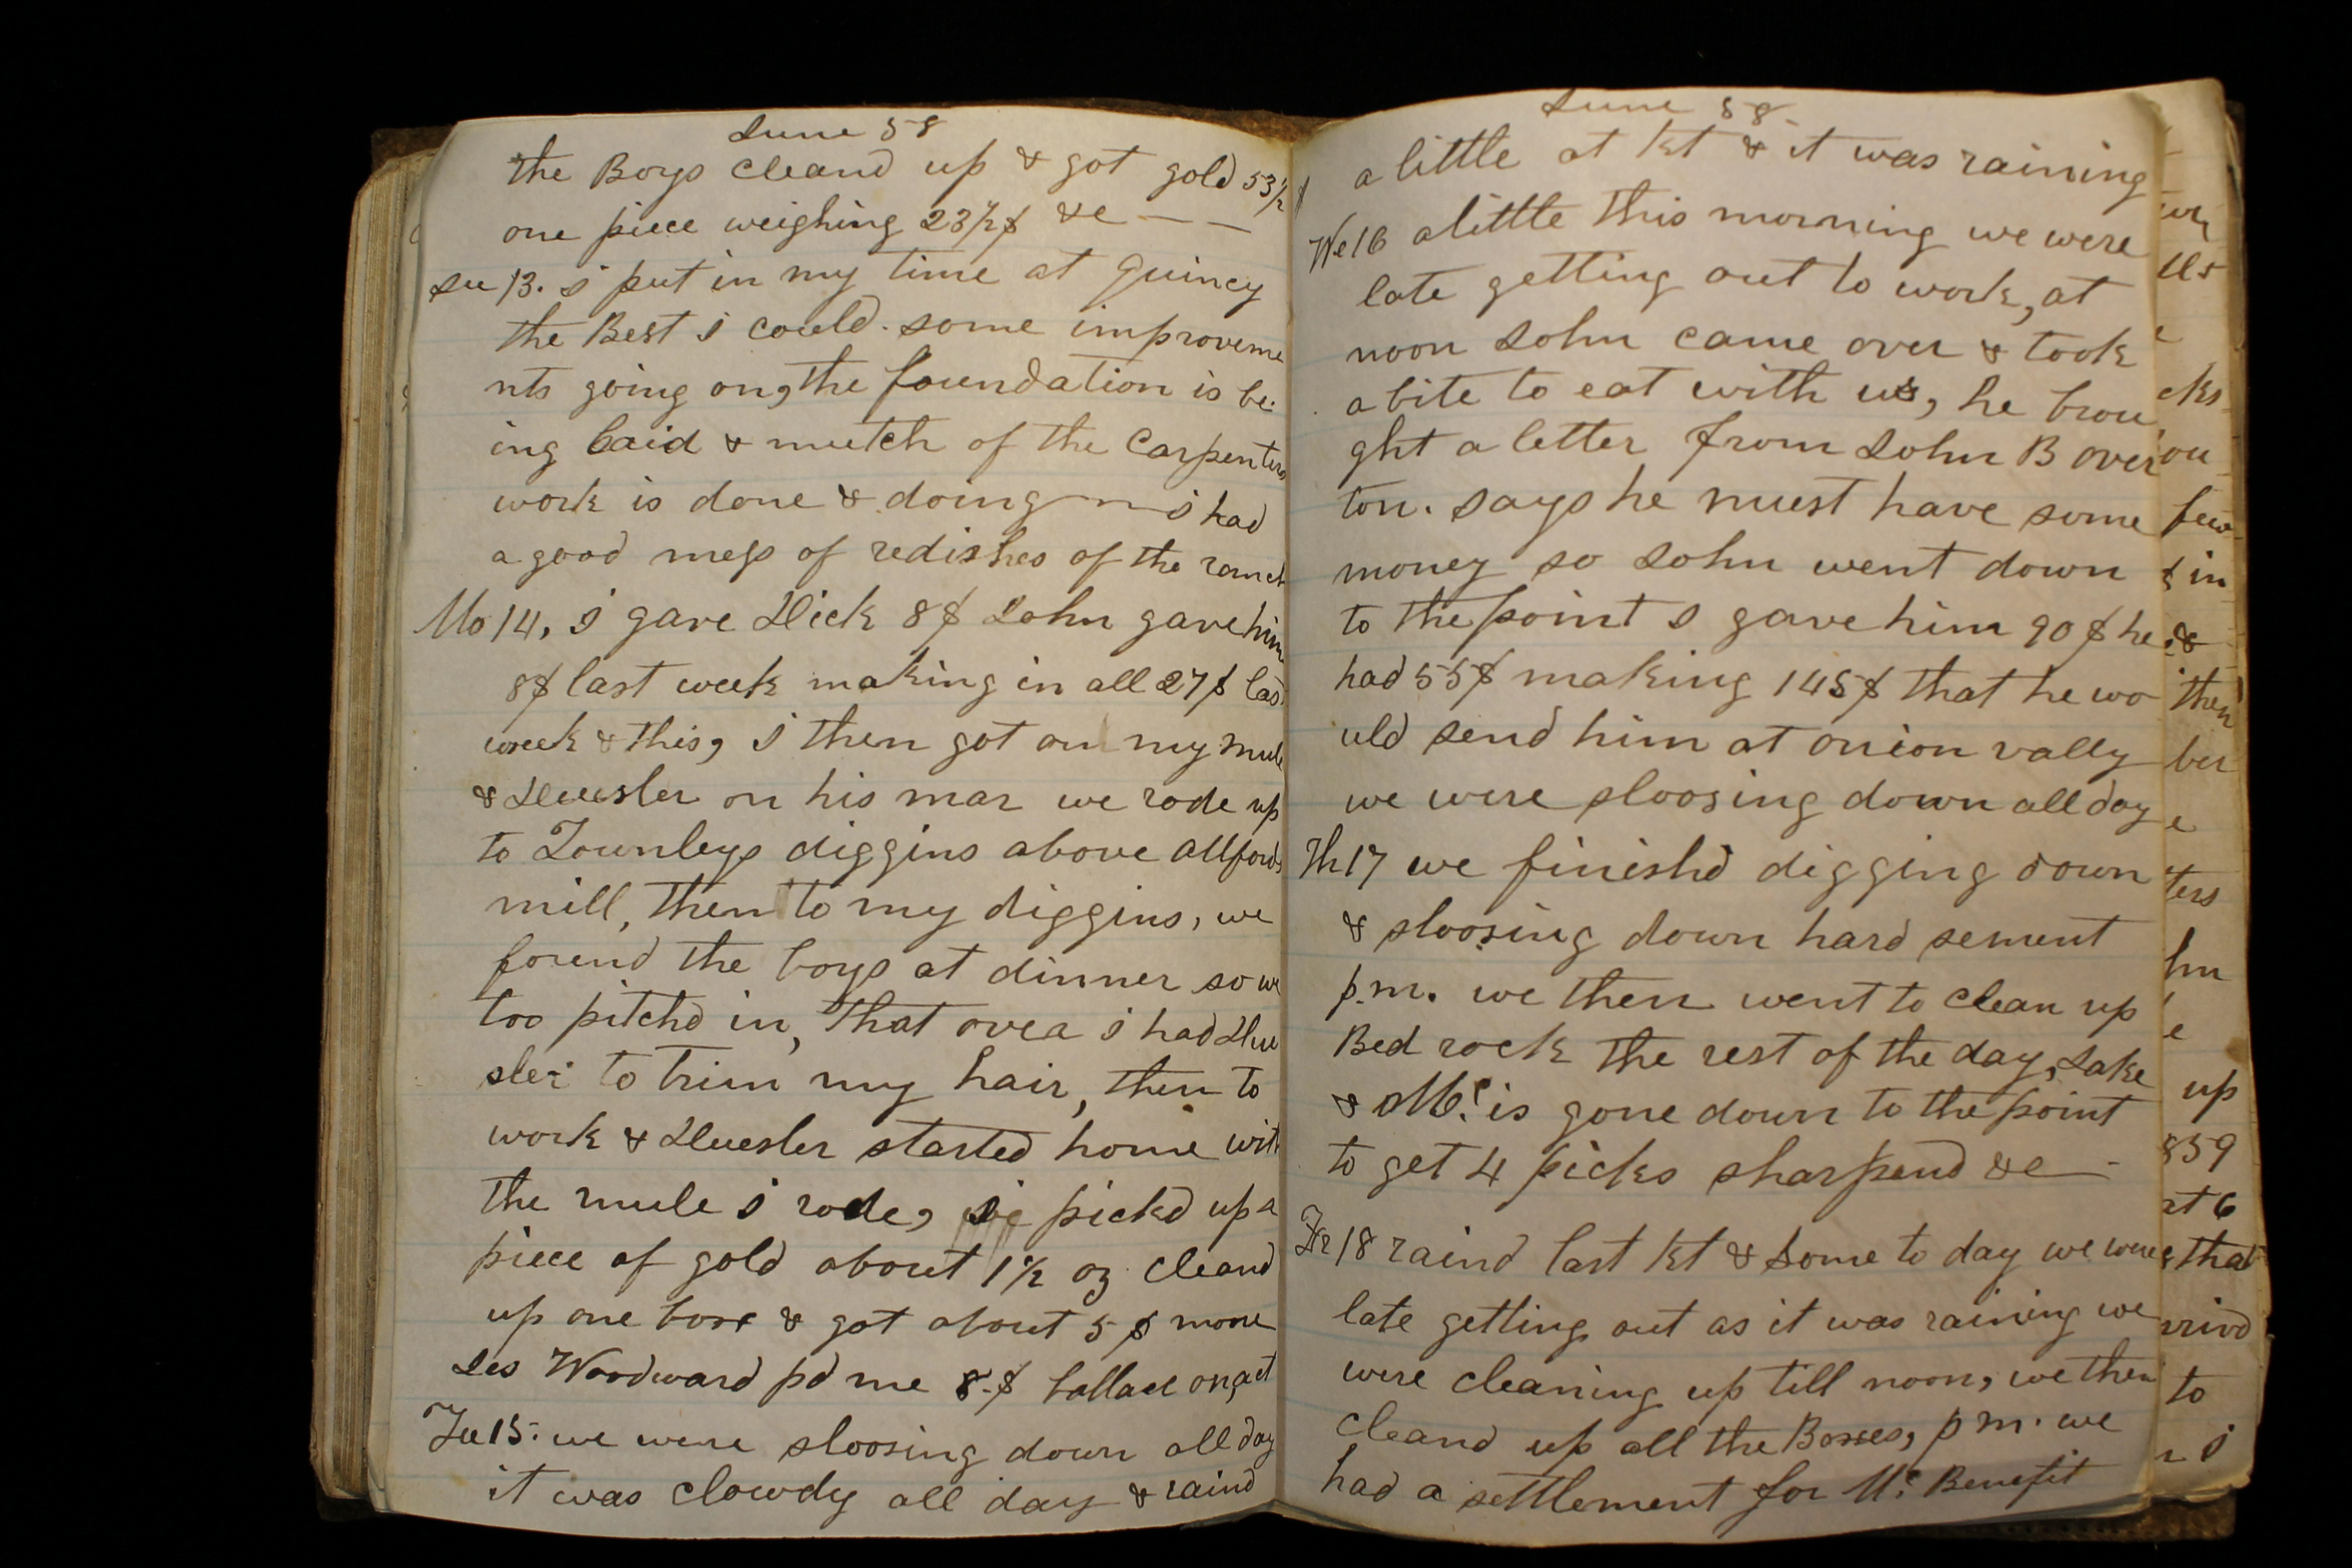 June 58
the Boys cleand up & got gold 53 1/2 $
one piece weighing 23 1/2 $ &c — —
Su 13. i put in my time at Quincy
the Best i could. some improveme
nts going on, the foundation is be
ing laid & mutch of the Carpenters
work is done & doing — i had
a good mess of redishes of the ranch
Mo 14, i gave Dick 8$ John gave him
8$ last week making in all 27$ las
week & this, i then got on my mule
& Huesler on his mar we rode up
to Townleys diggins above allfords
mill, then to my diggins, we
found the boys at dinner so we
too pitchd in, that over i had Hue
sler to trim my hair, then to
work & Huesler started home with
the mule i rode, pickd up a
piece of gold about 1 1/2 oz cleand
up one box & got about 5 $ more
Jes Woodward pd me 8.$ ballace on act
Tu 15. we were sloosing down all day
it was clowdy all day & raind
June 58
a little at kt & it was raining
We 16 a little this morning we were
late getting out to work, at
noon John came over & took
a bite to eat with us, he brou
ght a letter from John B over
ton. says he must have some
money so John went down
to the point I gave him 90 $ he
had 55$ making 145$ that he wo
uld send him at onion vally
we were sloosing down all day
Th 17 we finishd digging down
& sloosing down hard sement
p.m. we then went to clean up
Bed rock the rest of the day, Jake
& Mc. is gone down to the point
to get 4 picks sharpend &c —
Fr 18 raind last kt & some to day we were
late getting out as it was raining we
were cleaning up till noon, we then
cleand up all the Boxes, p m. we
had a settlement for Mc Benefit
few
in
&
then
ber
ters
up
859
at 6
that
to